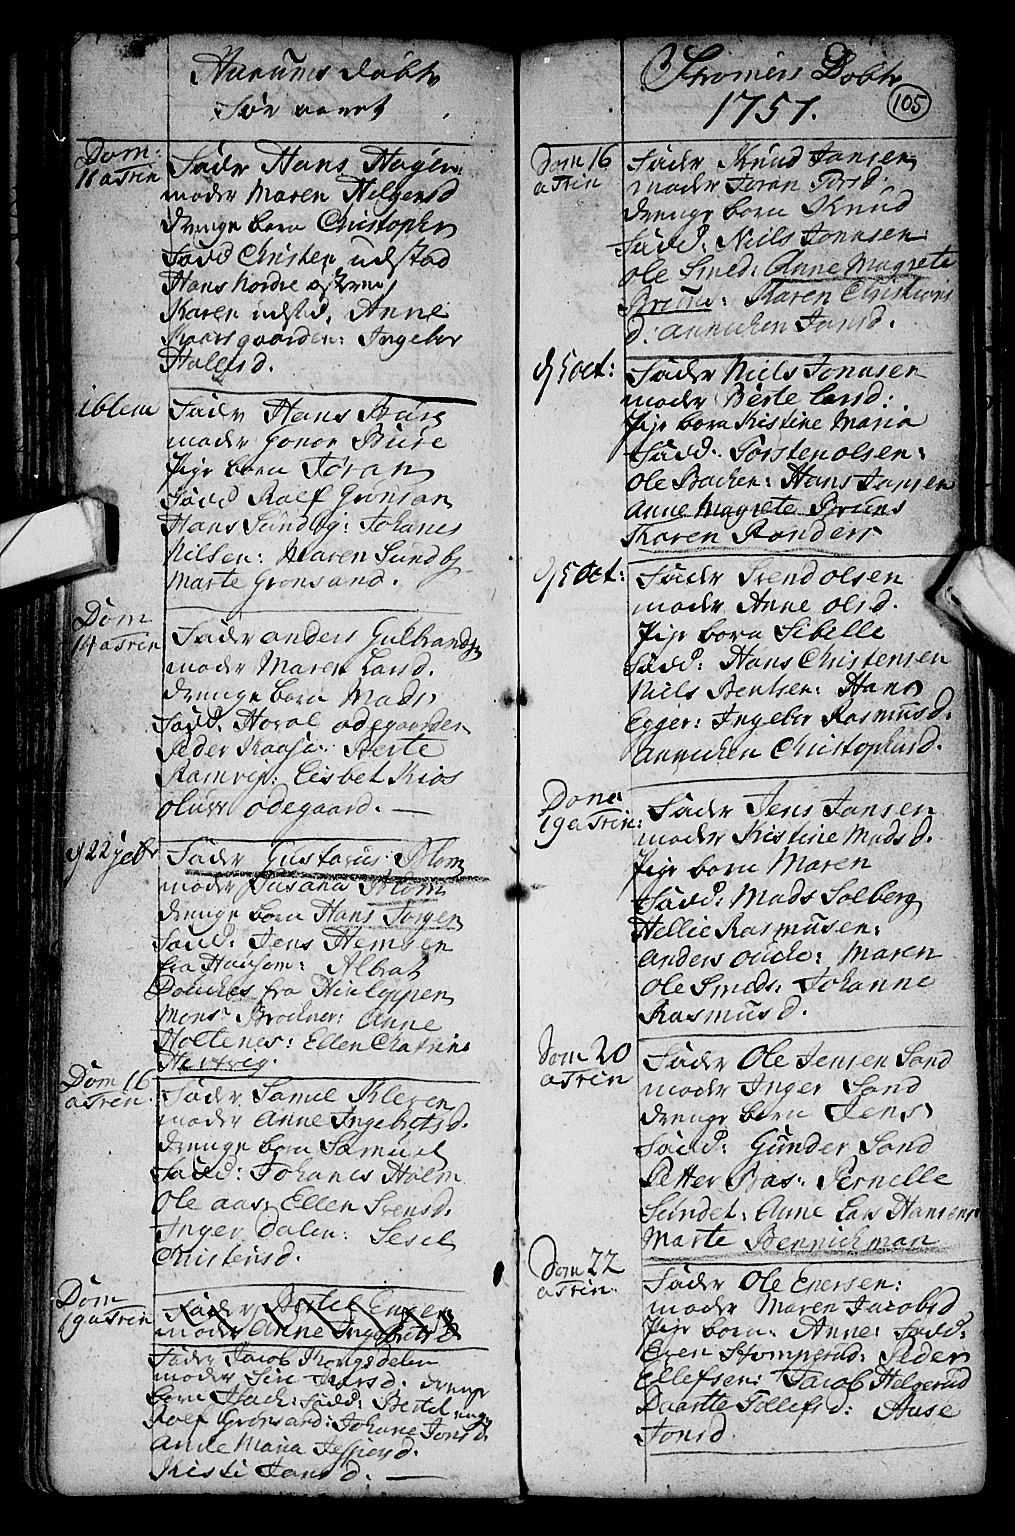 Hurums døbte
for aaret
Dom:
11 a Trin
Fader Hans Hagen:
moder Maren Helgersd
drenge born Christopher
Fadd Christen udstad
Hans Nordre
Karen udstd, Anne
Kaarsgaarden: Ingebor
Hallesd.
ibidem
Fader Hans Bure
moder Gonor Bure
Pige born Jøran
Fadd Rolf Grønsan
Hans Sundby: Johanes
Nilsen: Maren Sundby
Marte Grønsand.
Dom
14 a Trin
Fader anders Gulbrands
moder Maren Larsd.
drenge born Mads
Fadd: Horul ødegaarden
Peder Kaase: Berte
Ramvig: Lisbet Kios
oluf ødegaard. —
d 22 7tbr
Fader Gustavus Blom
moder Susana Blom
drenge born Hans Jørgen
Fadd: Jens Hemsen
fra Haasom: Albrat
Dommes fra
Monsr Brochner: Anne
Holtenes: Ellen Chatrine
Hertvig
Dom 16
a Trin.
Fader Samuel Kleven
moder Anne Ingebretsd.
drenge born Samuel
Fadd: Johanes Holm
Ole aas, Ellen Svensd.
Inger Dalen: Sesel
Christensd.
Dom
19 a Trin
Fader Bertel Enger
moder Anne Ingebretsd
Fader Jacob Kongsdelen
moder Siri Larsd. drenge
born Isach: Fadd: Bertel enger
Rolf Grønsand: Johane Jonsd
Anne Maria Jespersd.
Kisti Jansd. —
Strømens Dobte
1751.
105
Dom 16
a Trin
Fader Knud Jansen
moder Joran Persd.
drenge born Knud
Fadd: Niels Jonasen:
Ole Smed: Anne Magrete
Bruns: Karen Christians
d: annichen Jansd.
d 5 oct:
Fader Niels Jonasen
moder Berte Larsd:
Pige born Kristine Maria
Fadd: Torsten olsen:
Ole Bachen: Hans Jansen
Anne Magrete Bruns
Karen Randers
d 5 Oct:
Fader Svend olsen
moder Anne olsd.
Pige born Sibelle
Fadd: Hans Christensen
Niels Bentsen: Hans
Egger: Ingebor Rasmusd:
annichen Christophersd.
Dom
19 a Trin:
Fader Jens Jansen
moder Kristine Madsd.
Pige born Maren
Fadd: Mads Solberg
Hellie Rasmusen:
anders oude: Maren
Ole Smeds: Johanne
Rasmusd.
Dom 20
a Trin
Fader Ole Jensen Sand
moder Inger Sand
drenge born Jens
Fadd: Gunder Sand
Petter Bas: Pernelle
Sundet: Anne Lars Hansens
Marte Bennichman
Dom 22
a Trin.
Fader Ole Evensen:
moder Maren Jacobsd
Pige born: Anne: Fadd:
Even Stomperud: Peder
Ellefsen: Jacob Helgerud
Daartte Tollefsd: Aase
Jonsd.